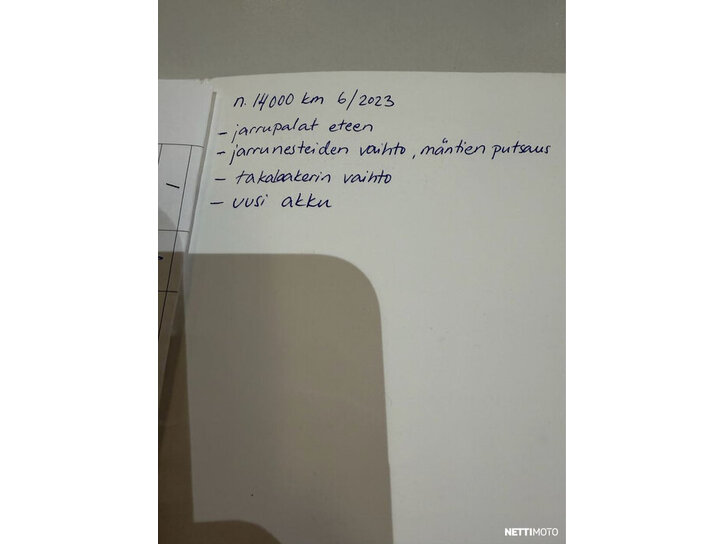 n. 14000 km 6/2023
- jarrupalat eteen
- jarrunesteiden vaihto, mäntien putsaus
- takalaakerin vaihto
- uusi akku
NETTIMOTO